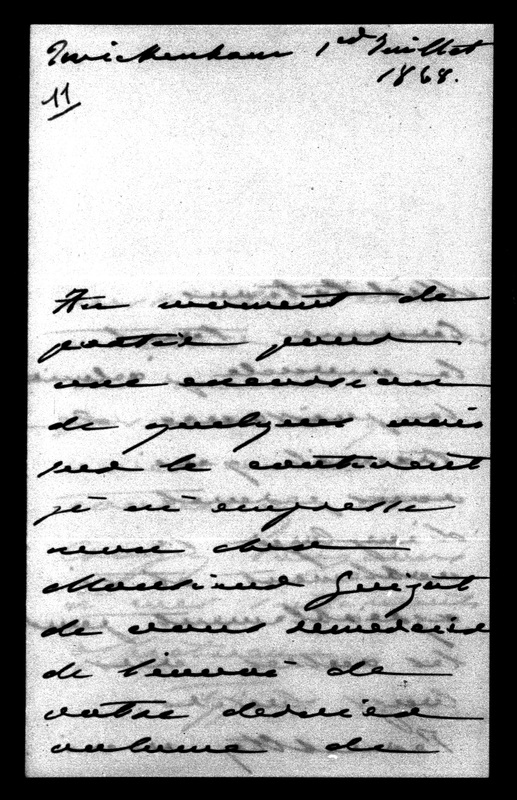 Twickenham 1er Juillet
1868.
11
Au moment de
partir pour
une excursion
de quelques mois
sur le continent
je m'empresse
mon cher
Monsieur Guizot
de vous remercier
de l'envoi de
votre dernier
volume de